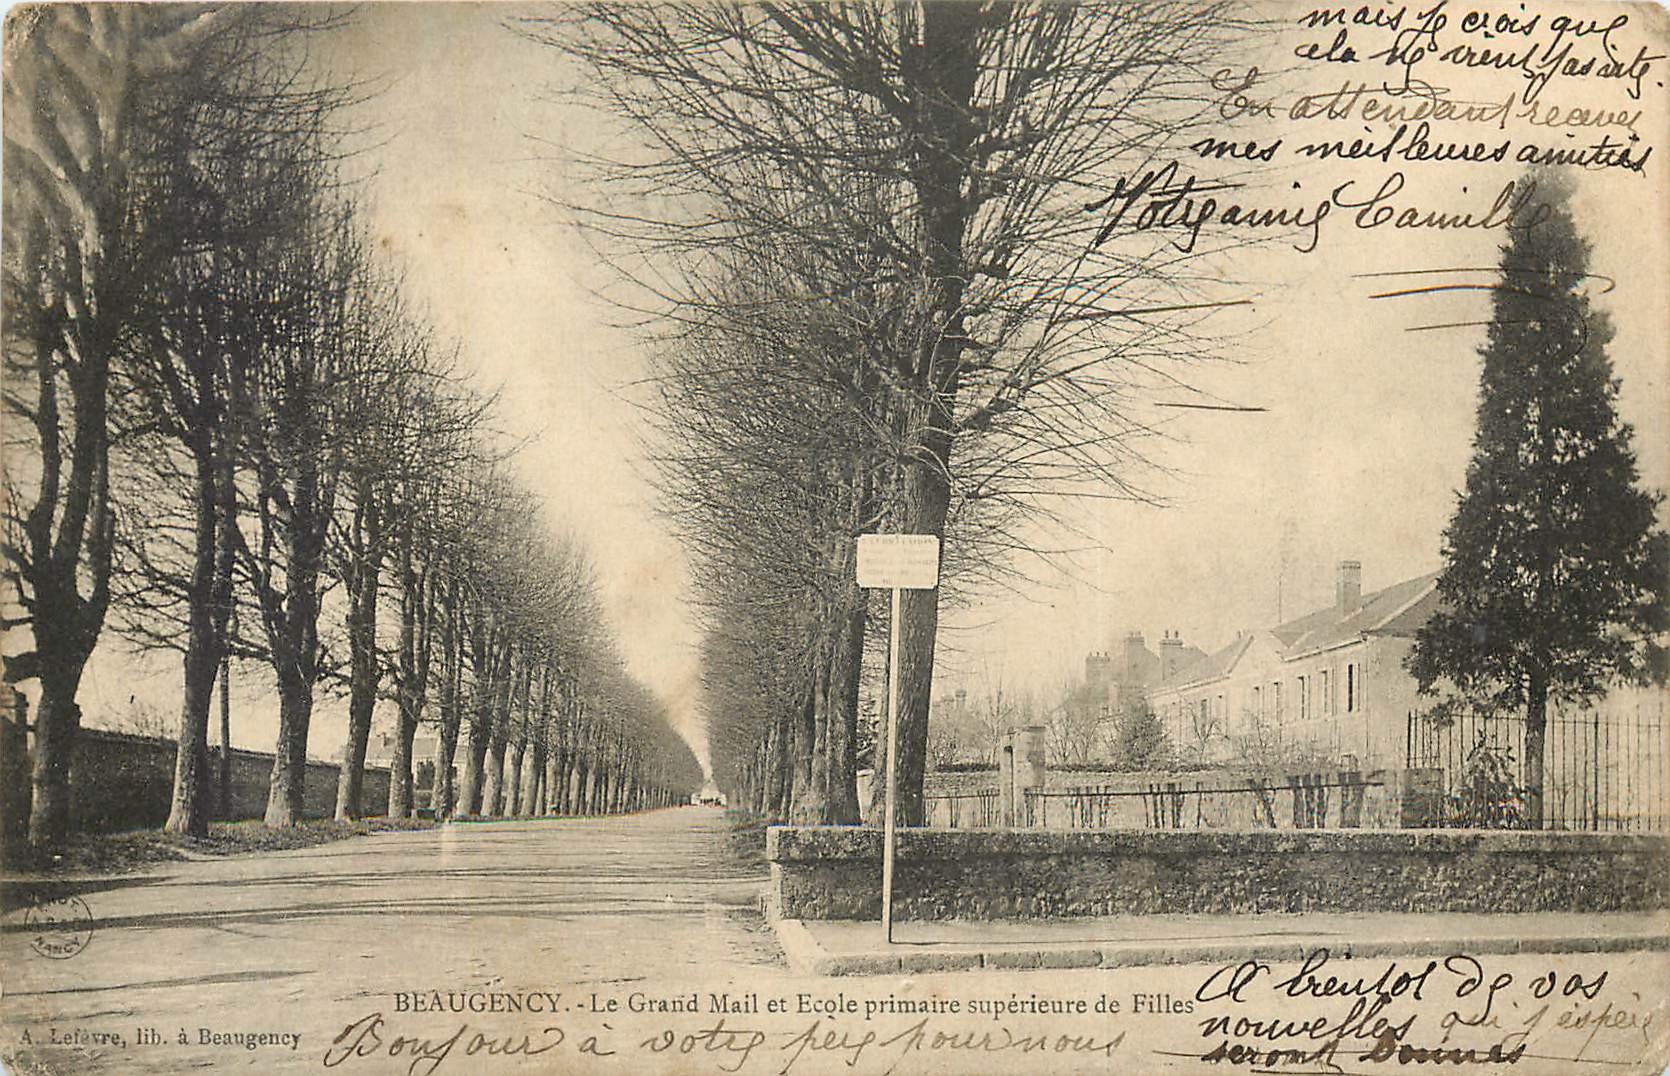 mais je crois que
cela ne vient pas vite.
En attendant recevez
mes meilleures amitiés
Votre amie Camille
BEAUGENCY. - Le Grand Mail et Ecole primaire supérieure de Filles
A. Lefèvre, lib. à Beaugency
Bonjour à votre père pour nous
A bientot de vos
nouvelles qui j'espère
seront bonnes
NANCY